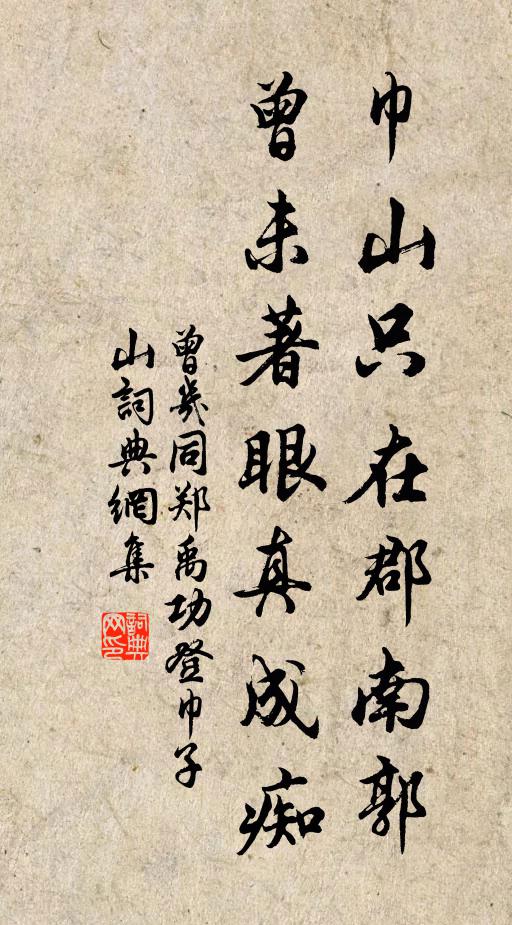 巾山只在郡南郭
曾未著眼真成痴
曾幾同郑禹功登巾子
山詞典網集
詞典网印